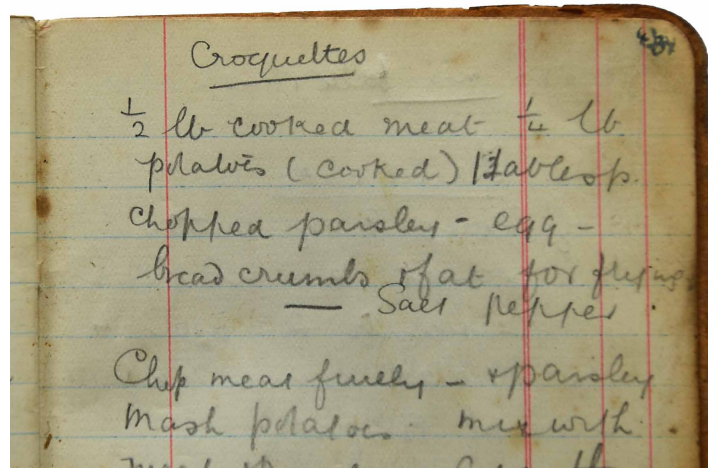 Croquettes
1/2 lb cooked meat 1/4 lb
potatoes (cooked) 1 tablesp.
chopped parsley - egg -
bread crumbs & fat for frying
— Salt pepper.
Chop meat finely - & parsley
Mash potatoes. mix with